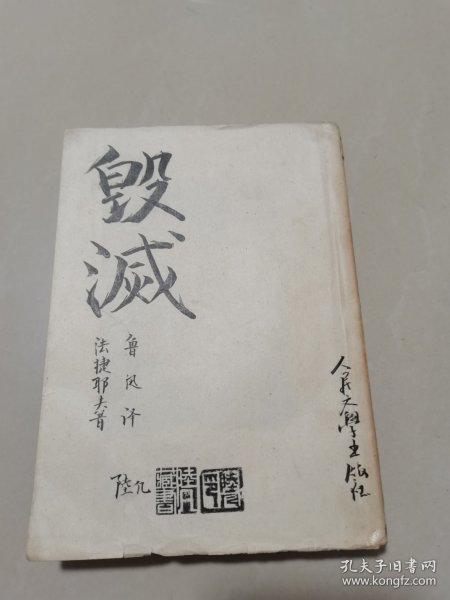 毀滅
鲁迅译
法捷耶夫著
人民文學出版社
陸
藏書
孔夫子旧书网
www.kongfz.com